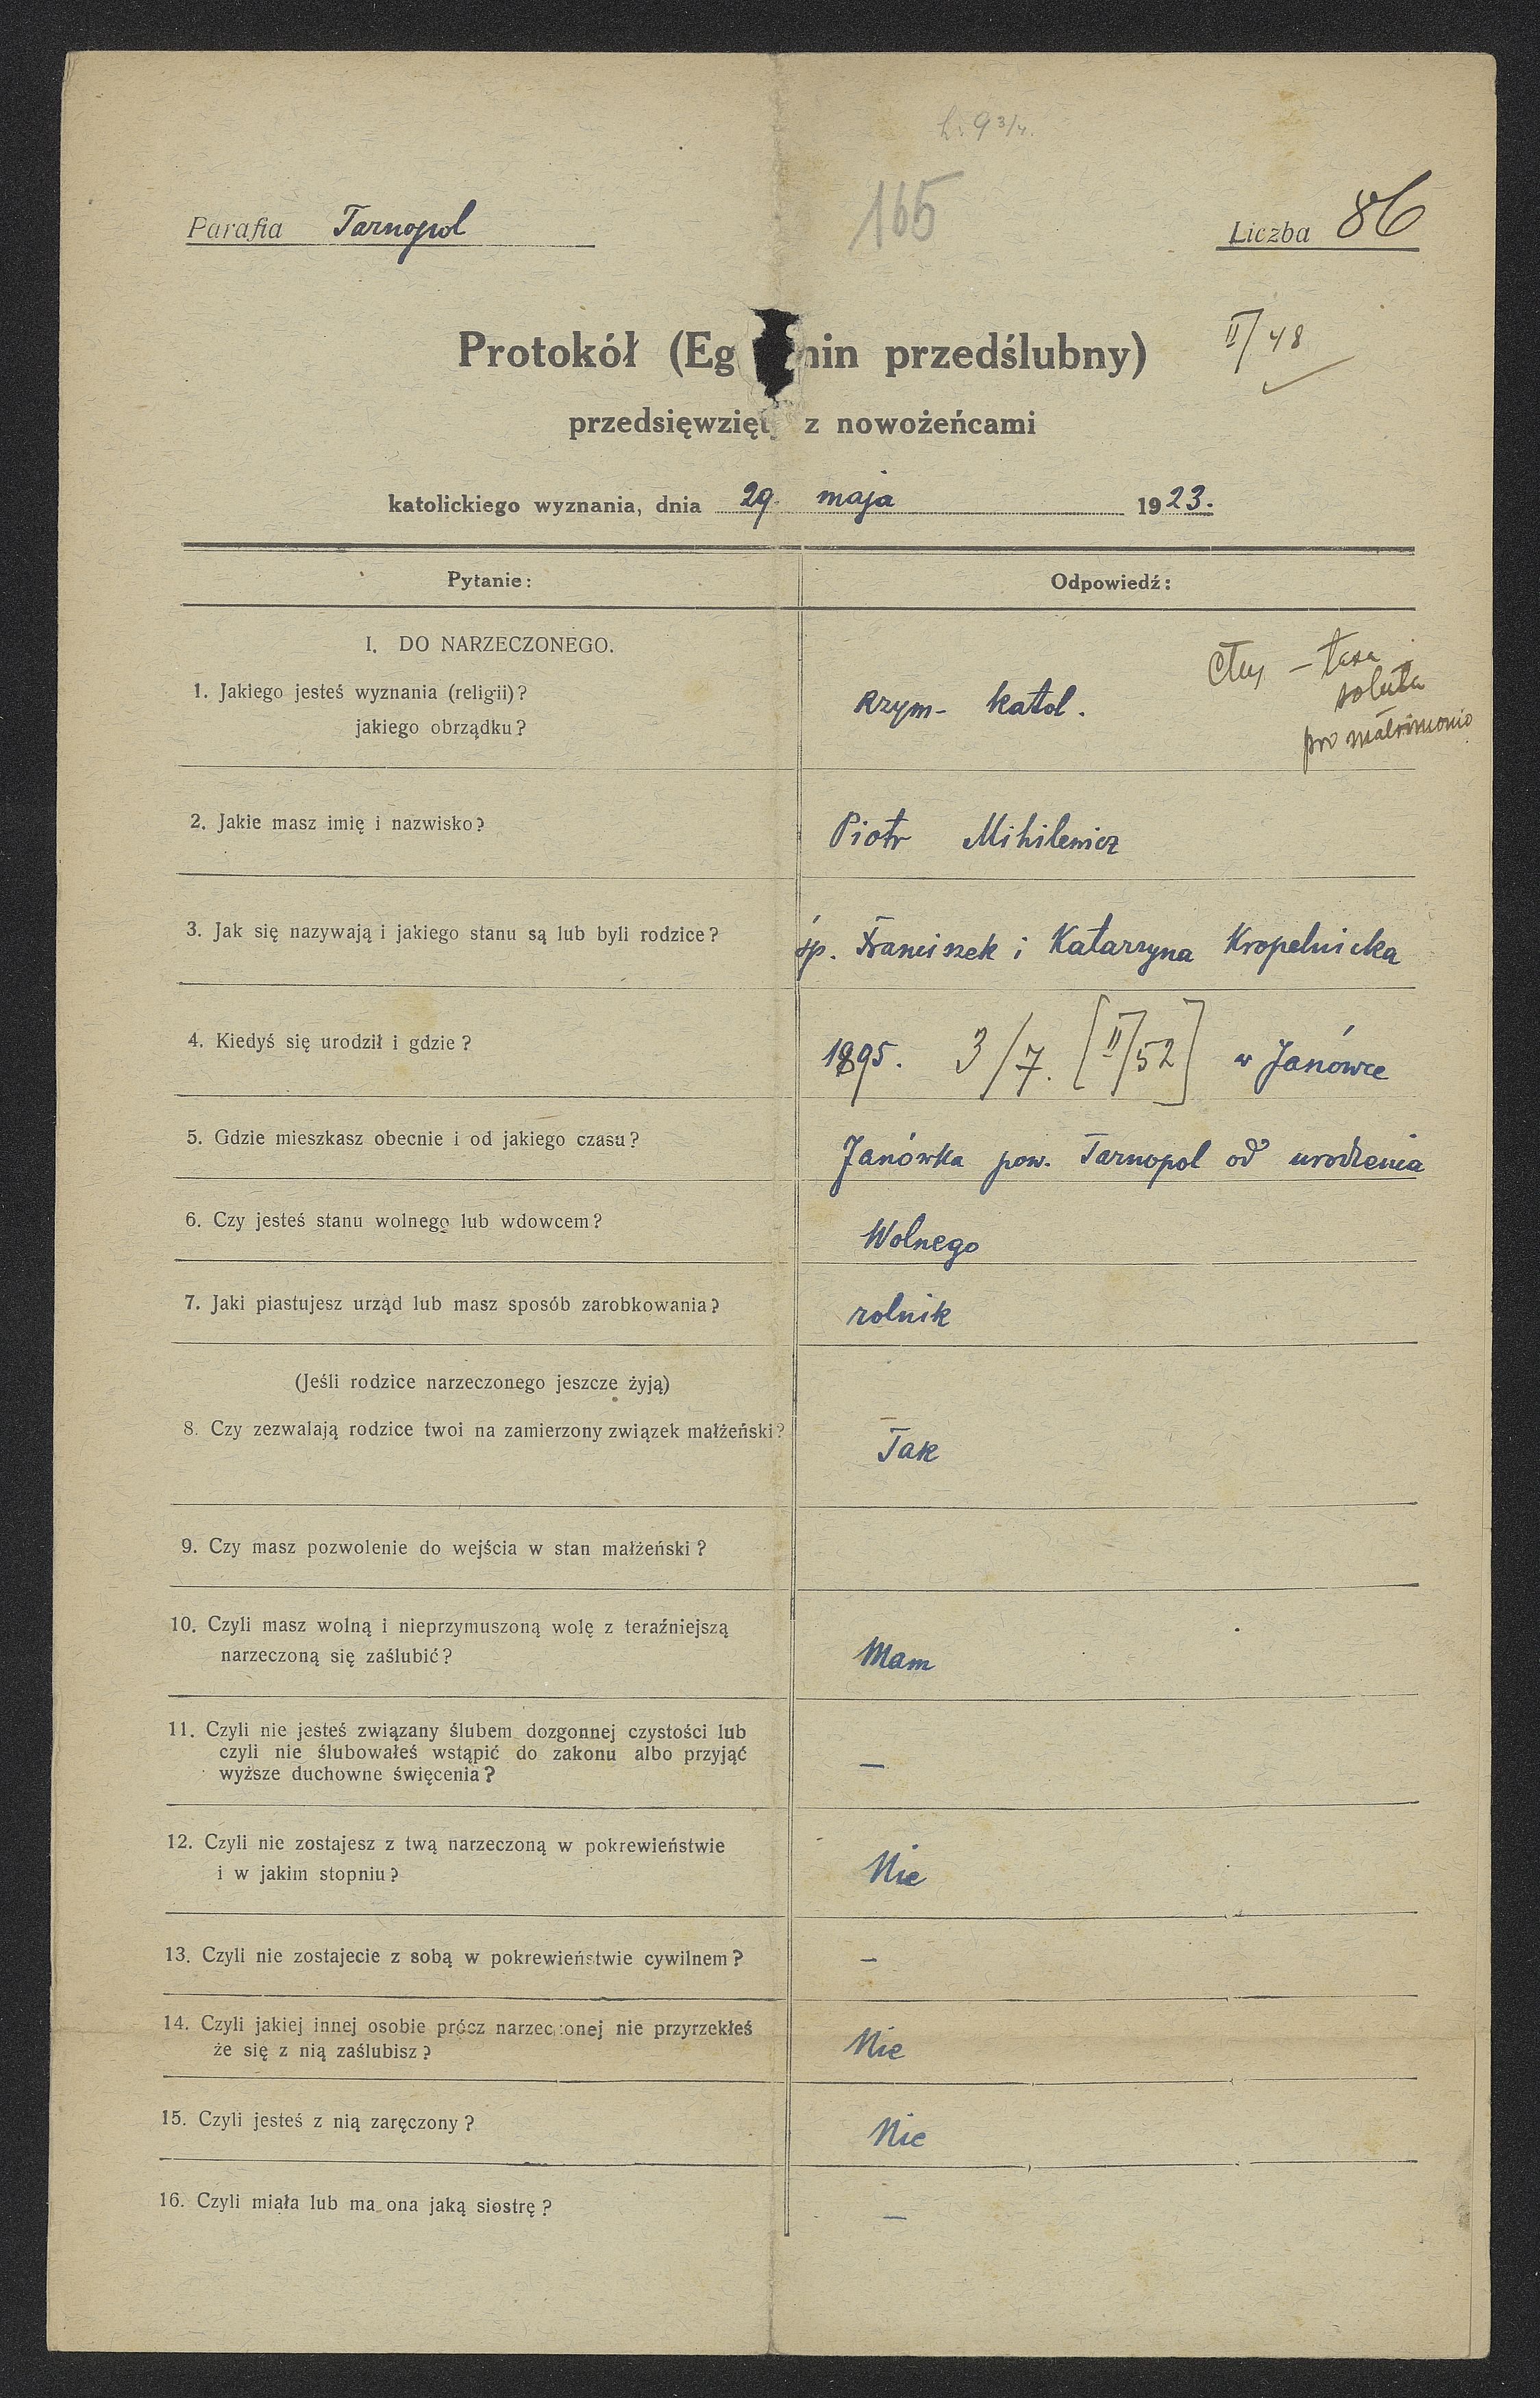 9 3/4.
165
Parafia Tarnopol
Liczba 86
Protokół (Eg min przedślubny)
II/48
przedsięwzięty z nowożeńcami
katolickiego wyznania, dnia 29. maja 1923.
Pytanie:
Odpowiedź:
I. DO NARZECZONEGO.
— taxa
soluta
pro matrimonio
1. Jakiego jesteś wyznania (religii)?
jakiego obrządku?
Rzym- katol.
2. Jakie masz imię i nazwisko?
Piotr Mihilewicz
3. Jak się nazywają i jakiego stanu są lub byli rodzice?
śp. Franciszek i Katarzyna Kropelnicka
4. Kiedyś się urodził i gdzie?
1895. 3/7. [II/52] w Janówce
5. Gdzie mieszkasz obecnie i od jakiego czasu?
Janówka pow. Tarnopol od urodzenia
6. Czy jesteś stanu wolnego lub wdowcem?
Wolnego
7. Jaki piastujesz urząd lub masz sposób zarobkowania?
rolnik
(Jeśli rodzice narzeczonego jeszcze żyją)
8. Czy zezwalają rodzice twoi na zamierzony związek małżeński?
Tak
9. Czy masz pozwolenie do wejścia w stan małżeński?
10. Czyli masz wolną i nieprzymuszoną wolę z teraźniejszą
narzeczoną się zaślubić?
Mam
11. Czyli nie jesteś związany ślubem dozgonnej czystości lub
czyli nie ślubowałeś wstąpić do zakonu albo przyjąć
wyższe duchowne święcenia?
—
12. Czyli nie zostajesz z twą narzeczoną w pokrewieństwie
i w jakim stopniu?
Nie
13. Czyli nie zostajecie z sobą w pokrewieństwie cywilnem?
–
14. Czyli jakiej innej osobie prócz narzeczonej nie przyrzekłeś
że się z nią zaślubisz?
Nie
15. Czyli jesteś z nią zaręczony?
Nie
16. Czyli miała lub ma ona jaką siostrę?
—